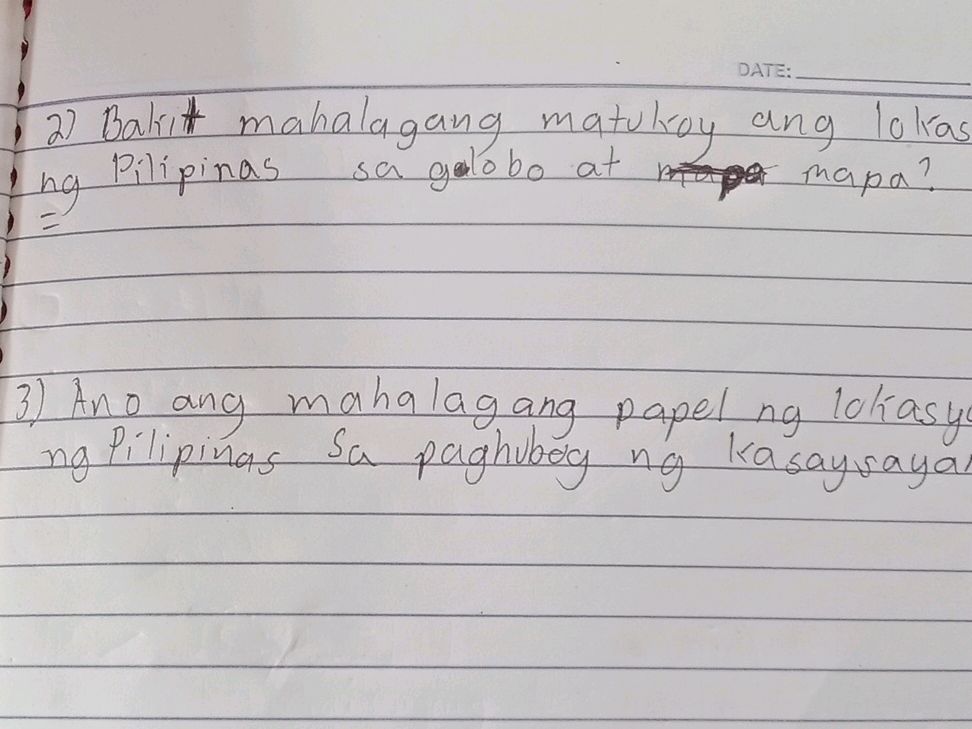 DATE:
2) Bakit mahalagang matukoy ang lokas
ng Pilipinas sa golobo at mapa?
=
3) Ano ang mahalagang papel ng lokasyo
ng Pilipinas sa paghubog ng kasaysayan